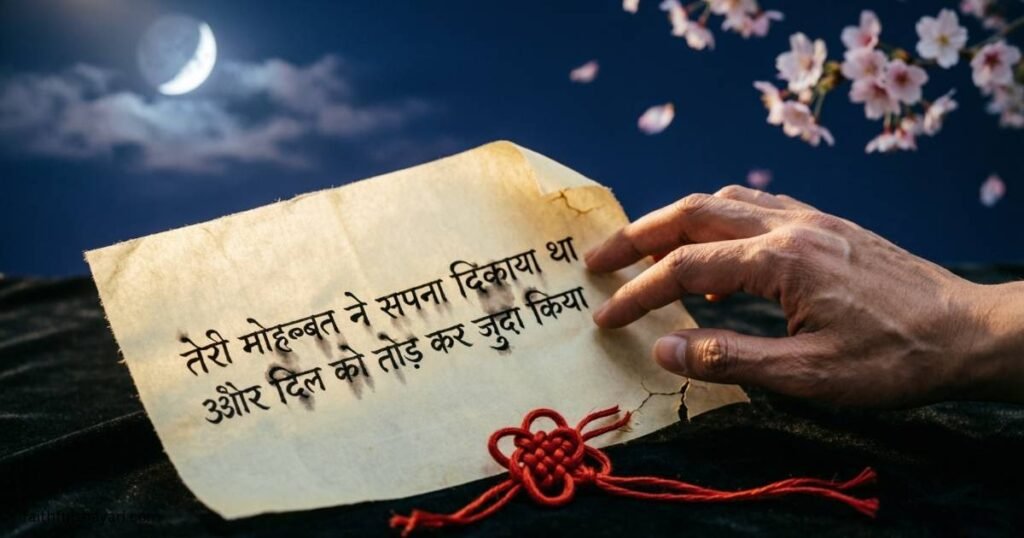 तेरी मोहब्बत ने सपना दिकाया था
उऔर दिल को तोड़ कर जुदा किया